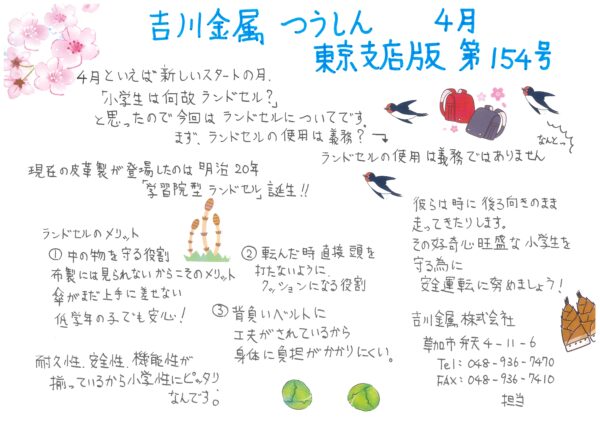 吉川金属 つうしん 4月
東京支店版 第154号
4月といえば新しいスタートの月.
「小学生は何故ランドセル?」
と思ったので今回はランドセルについてです。
まず、ランドセルの使用は義務?
なんとっ
ランドセルの使用は義務ではありません
現在の皮革製が登場したのは明治20年
「学習院型ランドセル」誕生!!
ランドセルのメリット
① 中の物を守る役割
布製には見られないからこそのメリット
傘がまだ上手に差せない
低学年の子でも安心!
② 転んだ時直接頭を
打たないように.
クッションになる役割
③ 背負いベルトに
工夫がされているから
身体に負担がかかりにくい。
耐久性.安全性.機能性が
揃っているから小学生にピッタリ
なんです。
彼らは時に後ろ向きのまま
走ってきたりします。
その好奇心旺盛な小学生を
守る為に
安全運転に努めましょう!
吉川金属株式会社
草加市弁天4-11-6
Tel:048-936-7470
FAX:048-936-7410
担当